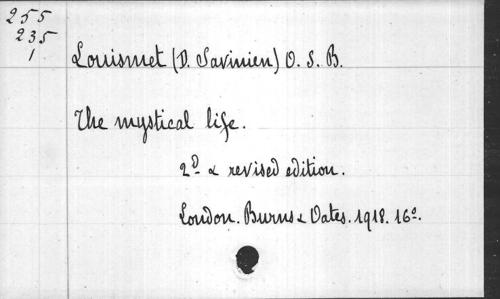 255
235
1
Louismet (D. Savinien) O. S. B.
The mystical life.
2D & revised edition.
London. Burns & Oates. 1918. 16o.